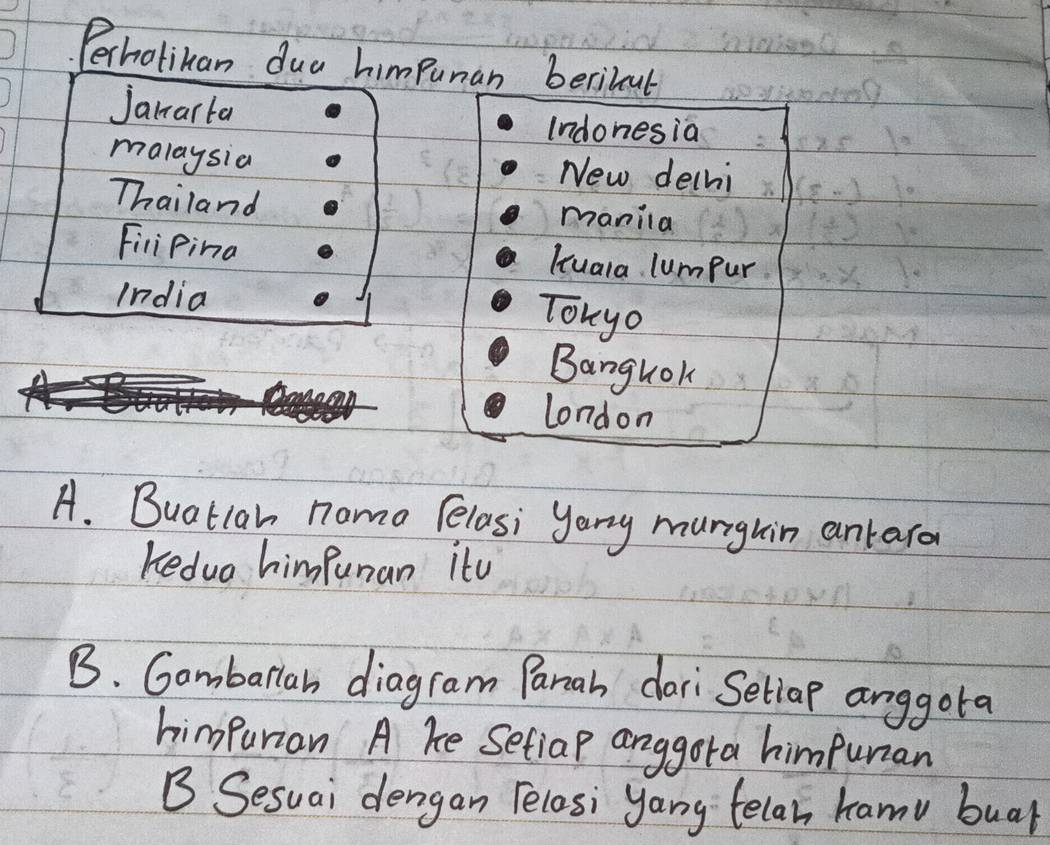 Perhatikan dua himpunan berikut
Jakarta
malaysia
Thailand
Filipina
India
Indonesia
New delhi
manila
kuala lumpur
Tokyo
Bangkok
London
A. Buatlah nama relasi yang mungkin antara
kedua himpunan itu
B. Gambarlah diagram Panah dari setiap anggota
himpunan A ke setiap anggota himpunan
B Sesuai dengan relasi yang telah kamu buat